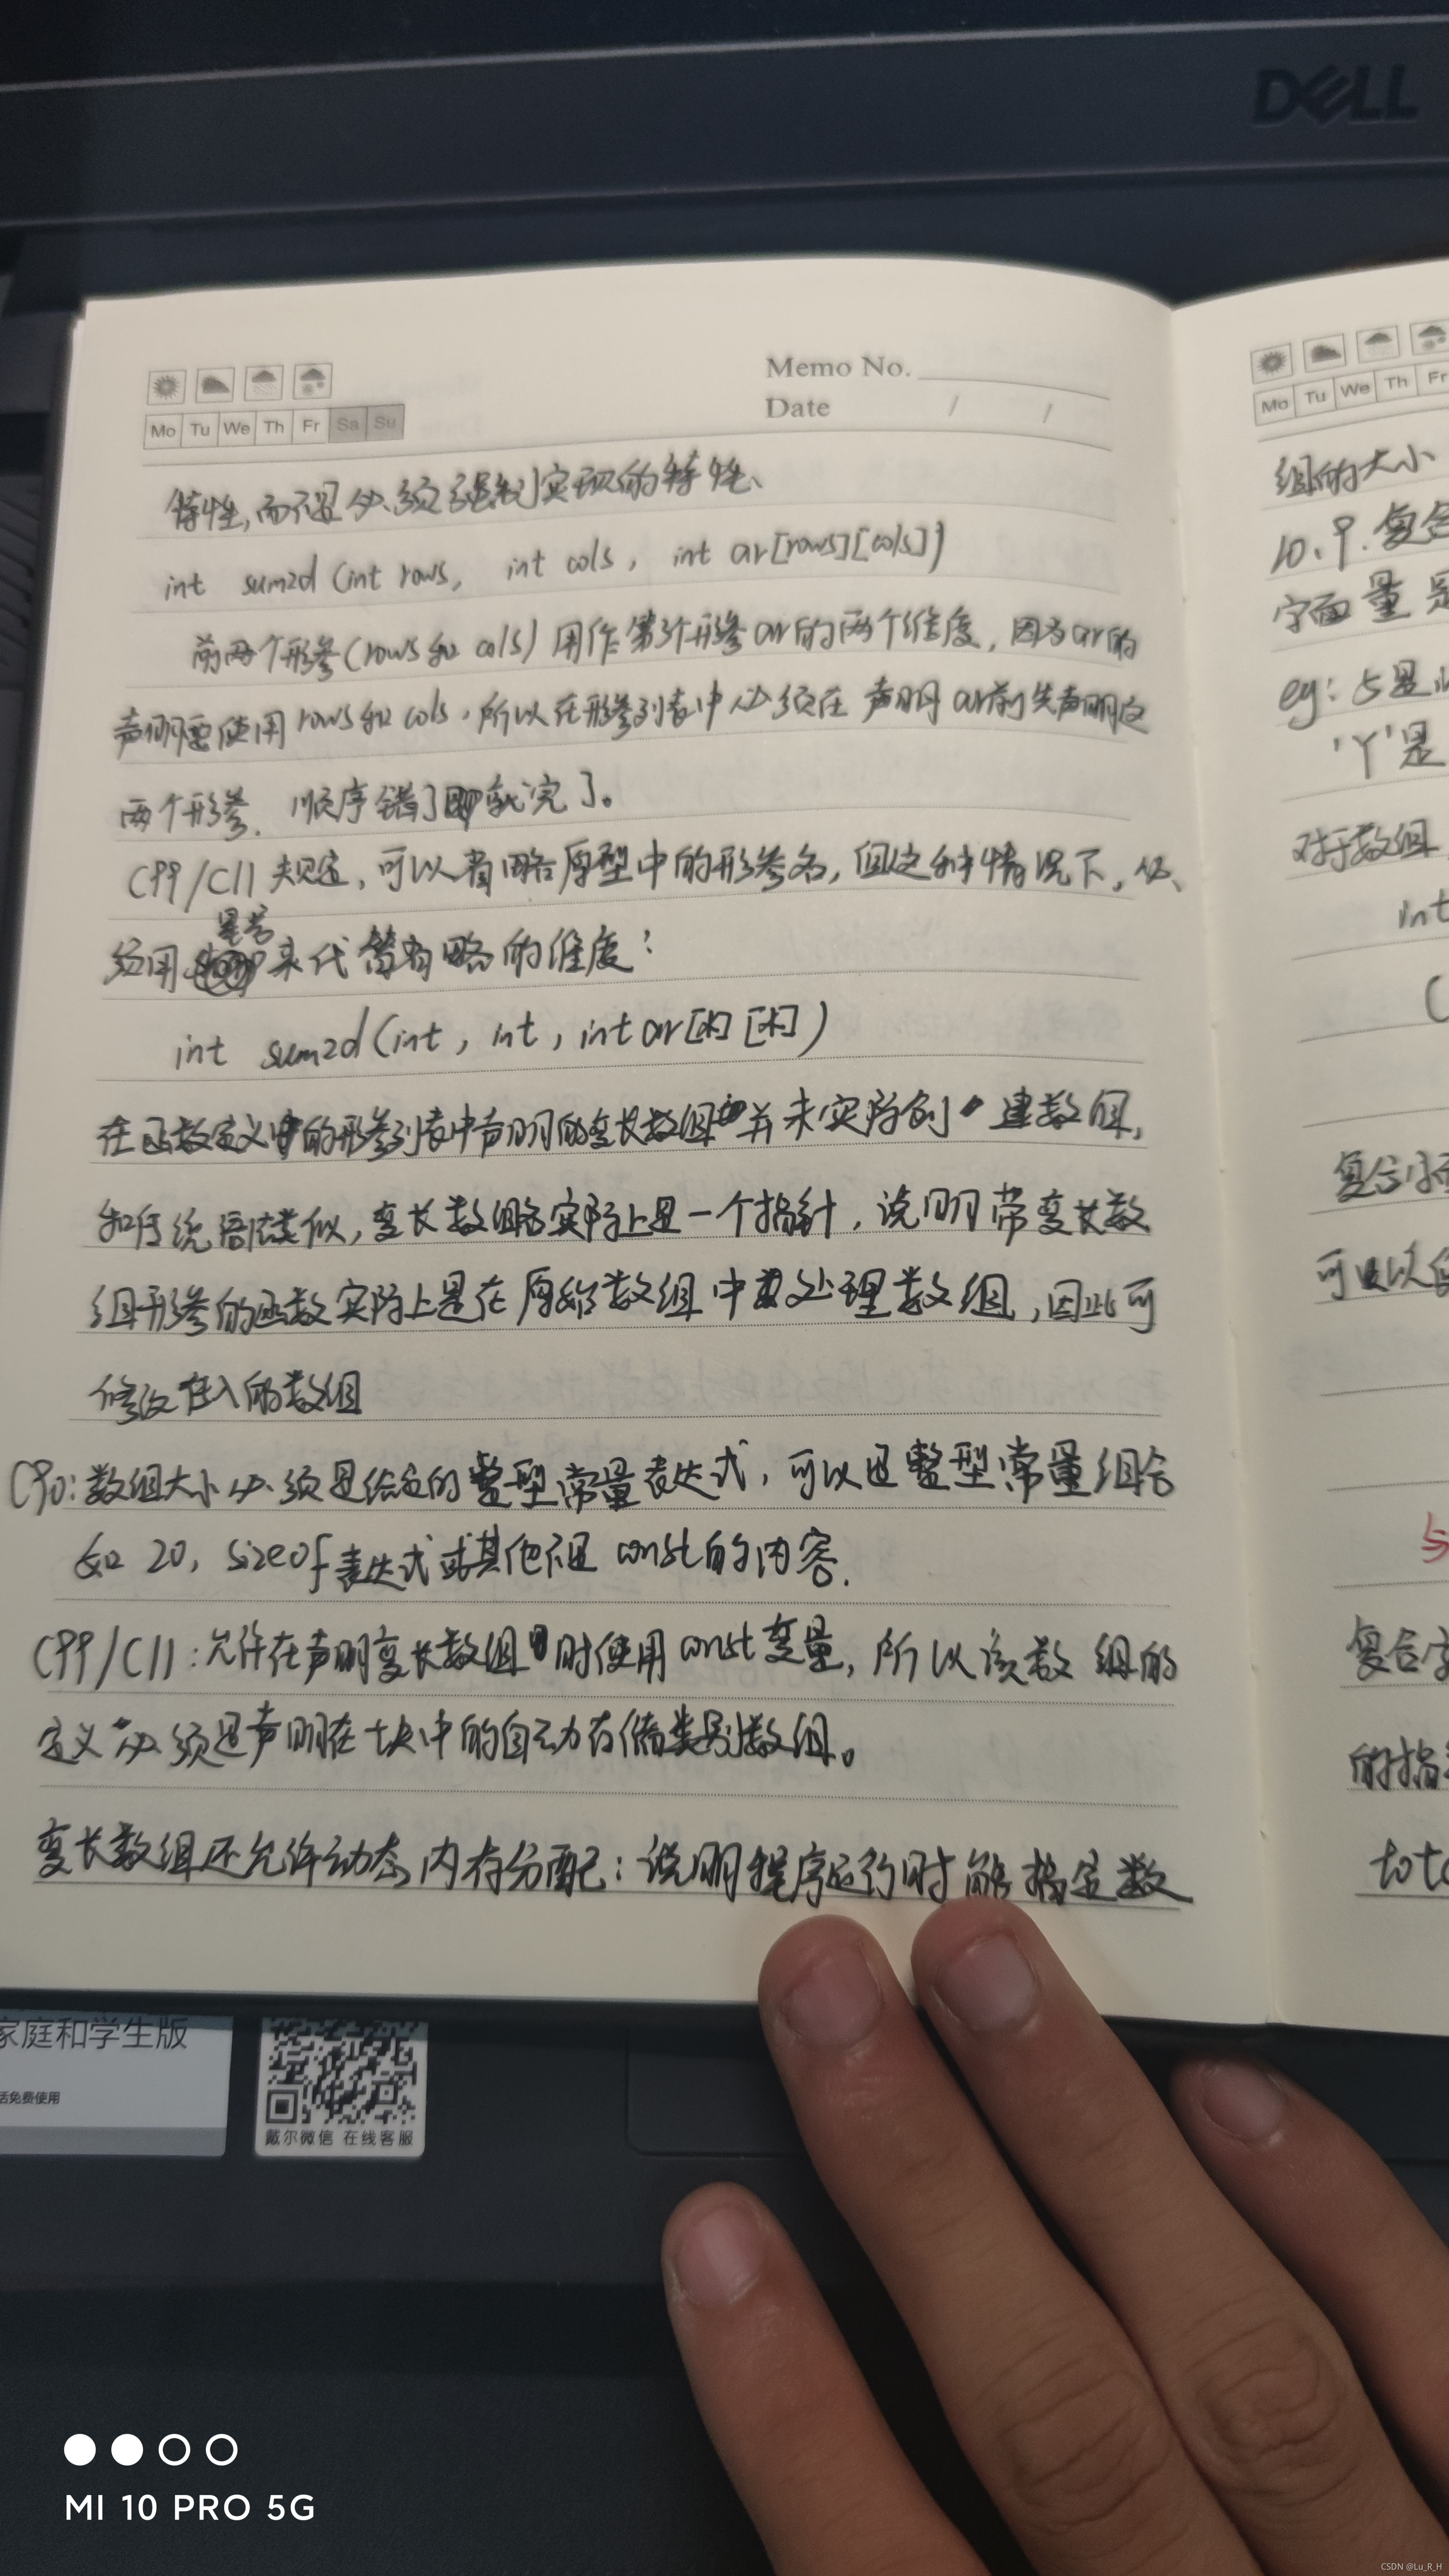 DELL
Memo No.
Date / /
Mo Tu We Th Fr Sa Su
特性,而不是必须强制实现的特性、
int sum2d (int rows, int cols, int ar[rows][cols])
前两个形参(rows和cols)用作第3个形参ar的两个维度,因为ar的
声明要使用rows和cols,所以在形参列表中必须在声明ar前先声明这
两个形参.顺序错了就完了。
C99/C11规定,可以省略原型中的形参名,但这种情况下,必
须用星号来代替省略的维度:
int sum2d(int, int, int ar[*][*])
在函数定义中的形参列表中声明的变长数组并未实际创建数组,
和传统语法类似,变长数组名实际上是一个指针,说明带变长数
组形参的函数实际上是在原始数组中处理数组,因此可
修改传入的数组
C90:数组大小必须是给定的整型常量表达式,可以是整型常量组合
如20,sizeof表达式或其他不是const的内容.
C99/C11:允许在声明变长数组时使用const变量,所以该数组的
定义必须是声明在块中的自动存储类别数组。
变长数组还允许动态内存分配:说明程序运行时能指定数
Mo Tu We Th Fr
组的大小
10.9.复合
字面量是
eg:5是
'Y'是
对于数组
int
(
复合
可以
5
复合字
的指
tot
家庭和学生版
活免费使用
戴尔微信 在线客服
MI 10 PRO 5G
CSDN @Lu_R_H